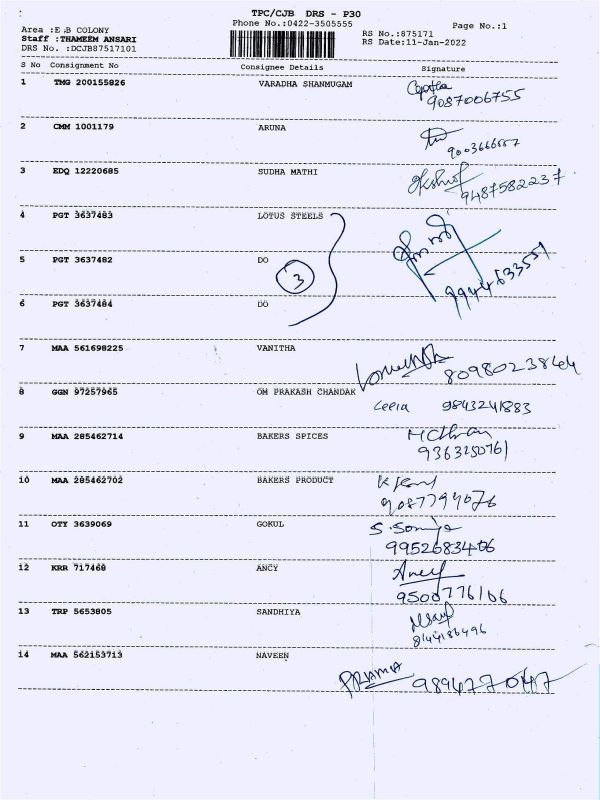 TPC/CJB DRS - P30
Phone No.:0422-3505555
Page No.:1
Area :E.B COLONY
Staff :THAMEEM ANSARI
DRS No. :DCJB87517101
RS No.:875171
RS Date:11-Jan-2022
S No Consignment No Consignee Details Signature
1 TMG 200155826 VARADHA SHANMUGAM
9087006755
2 CMM 1001179 ARUNA
3 EDQ 12220685 SUDHA MATHI
9487582237
4 PGT 3637483 LOTUS STEELS
5 PGT 3637482 DO
3
9944633551
6 PGT 3637484 DO
7 MAA 561698225 VANITHA
8098023844
8 GGN 97257965 OM PRAKASH CHANDAK
Leela 9843241883
9 MAA 285462714 BAKERS SPICES
10 MAA 285462702 BAKERS PRODUCT
9087794076
11 OTY 3639069 GOKUL
S. Somiya
9952683406
12 KRR 717468 ANCY
Ancy
9500776106
13 TRP 5653805 SANDHIYA
8144186496
14 MAA 562153713 NAVEEN
9894770147